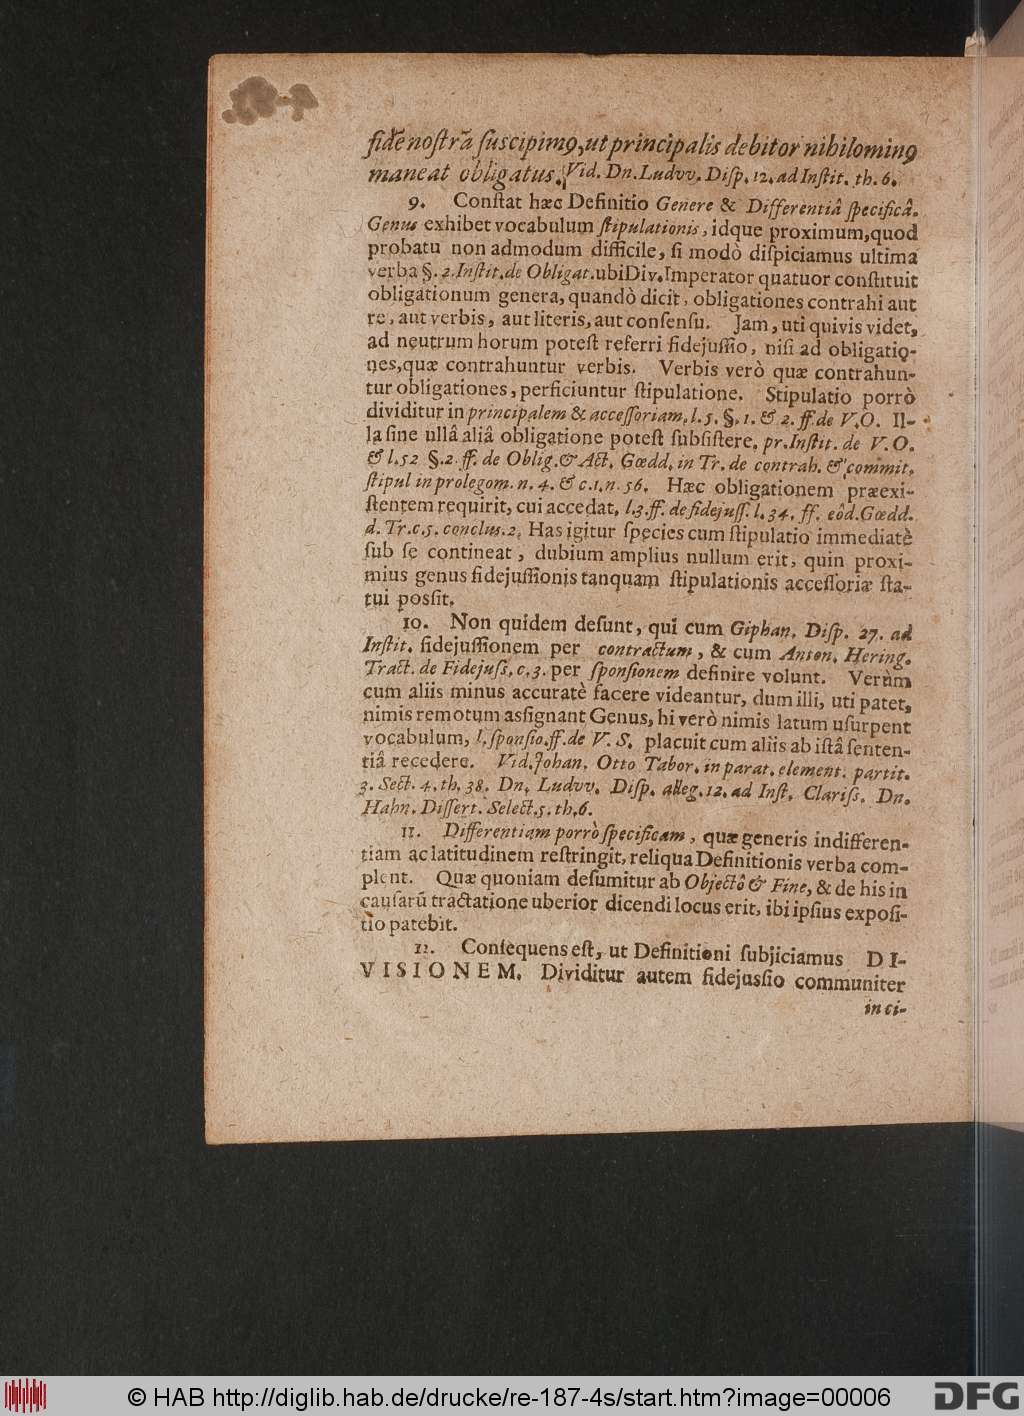 fidē noſtrā ſuscipimꝯ, ut principalis debitor nihilominꝯ
maneat obligatus. Vid. Dn. Ludvv. Diſp. 12. ad Inſtit. th. 6.
9. Conſtat hæc Definitio Genere & Differentiâ ſpecificâ.
Genus exhibet vocabulum ſtipulationis, idque proximum, quod
probatu non admodum difficile, ſi modò diſpiciamus ultima
verba §. 2. Inſtit. de Obligat. ubi Div. Imperator quatuor conſtituit
obligationum genera, quandò dicit, obligationes contrahi aut
re, aut verbis, aut literis, aut conſenſu. Jam, uti quivis videt,
ad neutrum horum poteſt referri fidejuſſio, niſi ad obligatio-
nes, quæ contrahuntur verbis. Verbis verò quæ contrahun-
tur obligationes, perficiuntur ſtipulatione. Stipulatio porrò
dividitur in principalem & acceſſoriam, l. 5. §. 1. & 2. ff. de V. O. Il-
la ſine ullâ aliâ obligatione poteſt ſubſiſtere, pr. Inſtit. de V. O.
& l. 52 §. 2. ff. de Oblig. & Act. Gœdd. in Tr. de contrah. & commit.
ſtipul in prolegom. n. 4. & c. 1. n. 56. Hæc obligationem præexi-
ſtentem requirit, cui accedat, l. 3. ff. de fidejuſſ. l. 34. ff. eôd. Gœdd.
d. Tr. c. 5. conclus. 2. Has igitur ſpecies cum ſtipulatio immediatè
ſub ſe contineat, dubium amplius nullum erit, quin proxi-
mius genus fidejuſſionis tanquam ſtipulationis acceſſoriæ ſta-
tui posſit.
10. Non quidem deſunt, qui cum Giphan. Diſp. 27. ad
Inſtit. fidejuſſionem per contractum, & cum Anton. Hering.
Tract. de Fidejuſs. c. 3. per ſponſionem definire volunt. Verùm
cum aliis minus accuratè facere videantur, dum illi, uti patet,
nimis remotum asſignant Genus, hi verò nimis latum uſurpent
vocabulum, l. ſponſio. ff. de V. S. placuit cum aliis ab iſtâ ſenten-
tiâ recedere. Vid. Johan. Otto Tabor. in parat. element. partit.
3. Sect. 4. th. 38. Dn. Ludvv. Diſp. alleg. 12. ad Inſt. Clariſs. Dn.
Hahn. Diſſert. Select. 5. th. 6.
11. Differentiam porrò ſpecificam, quæ generis indifferen-
tiam ac latitudinem reſtringit, reliqua Definitionis verba com-
plent. Quæ quoniam deſumitur ab Objectô & Fine, & de his in
cauſarū tractatione uberior dicendi locus erit, ibi ipſius expoſi-
tio patebit.
12. Conſequens eſt, ut Definitioni ſubjiciamus DI-
VISIONEM. Dividitur autem fidejusſio communiter
in ci-
© HAB http://diglib.hab.de/drucke/re-187-4s/start.htm?image=00006
DFG